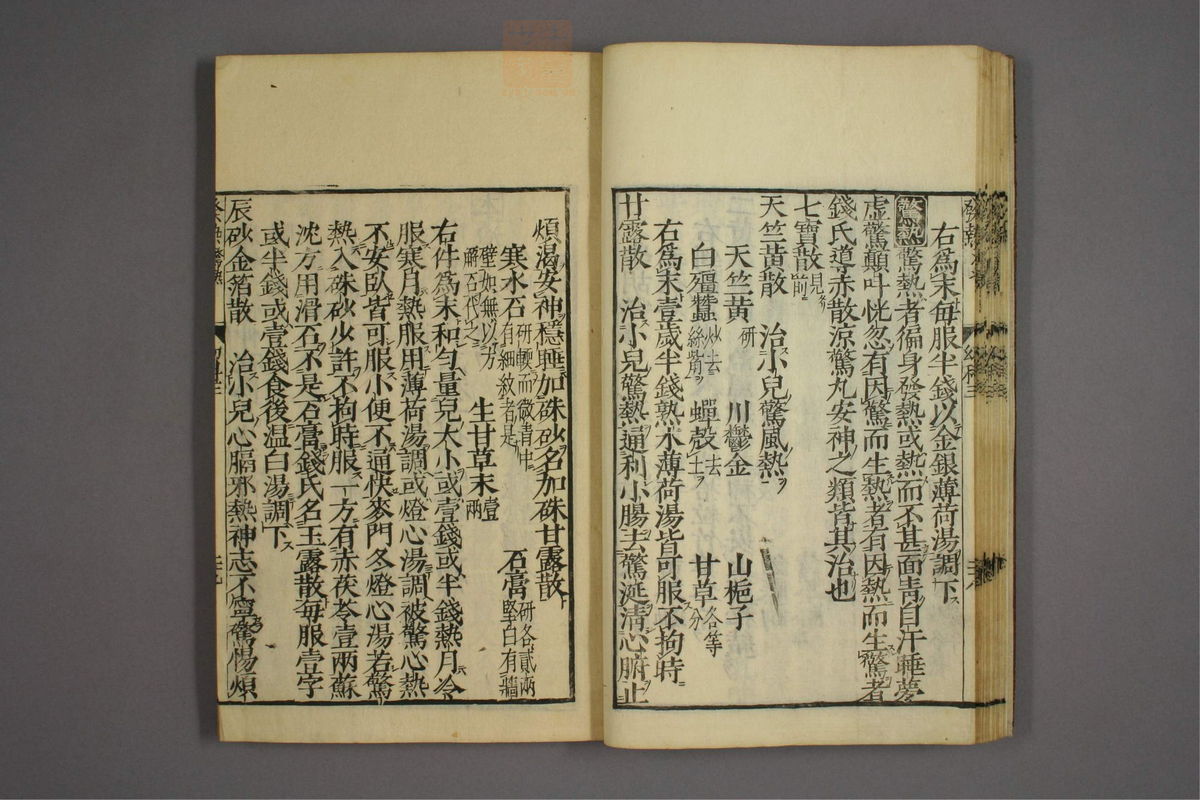 右爲末每服半錢以金銀薄荷湯調下
驚熱驚熱者徧身發熱或熱而不甚面靑自汗睡夢
虛驚顚叫恍忽有因驚而生熱者有因熱而生驚者
錢氏導赤散涼驚丸安神之類皆其治也
七寶散見前
天竺黃散 治小兒驚風熱
天竺黃研 川鬱金 山梔子
白殭蠶炒去絲觜 蟬殼去土 甘草各等分
右爲末壹歲半錢熟水薄荷湯皆可服不拘時
甘露散 治小兒驚熱通利小腸去驚涎淸心腑止
煩渴安神穩睡加硃砂名加硃甘露散
寒水石研輭而微靑中有細紋者是 石膏研各貳兩堅白有牆
壁如無以方解石代之 生甘草末壹兩
右件爲末和勻量兒大小或壹錢或半錢熱月冷
服寒月熱服用薄荷湯調或燈心湯調被驚心熱
不安臥皆可服小便不通快麥門冬燈心湯若驚
熱入硃砂少許不拘時服一方有赤茯苓壹兩蘇
沈方用滑石不是石膏錢氏名玉露散每服壹字
或半錢或壹錢食後溫白湯調下
辰砂金箔散 治小兒心膈邪熱神志不寧驚惕煩